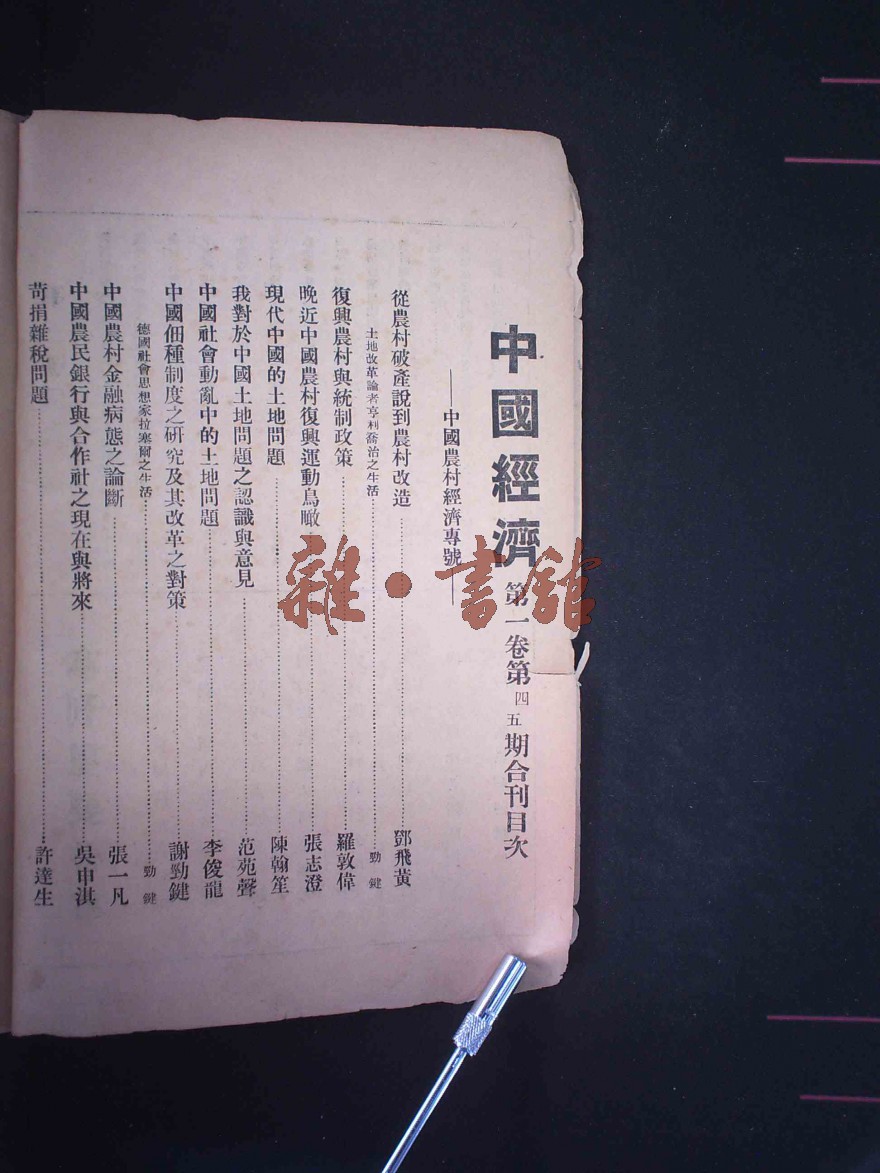 中國經濟 第一卷第四五期合刊目次
——中國農村經濟專號——
從農村破產說到農村改造……鄧飛黃
土地改革論者亨利喬治之生活……勁鍵
復興農村與統制政策……羅敦偉
晚近中國農村復興運動鳥瞰……張志澄
現代中國的土地問題……陳翰笙
我對於中國土地問題之認識與意見……范苑聲
中國社會動亂中的土地問題……李俊龍
中國佃種制度之研究及其改革之對策……謝勁鍵
德國社會思想家拉塞爾之生活……勁鍵
中國農村金融病態之論斷……張一凡
中國農民銀行與合作社之現在與將來……吳申淇
苛捐雜稅問題……許達生
雜·書館